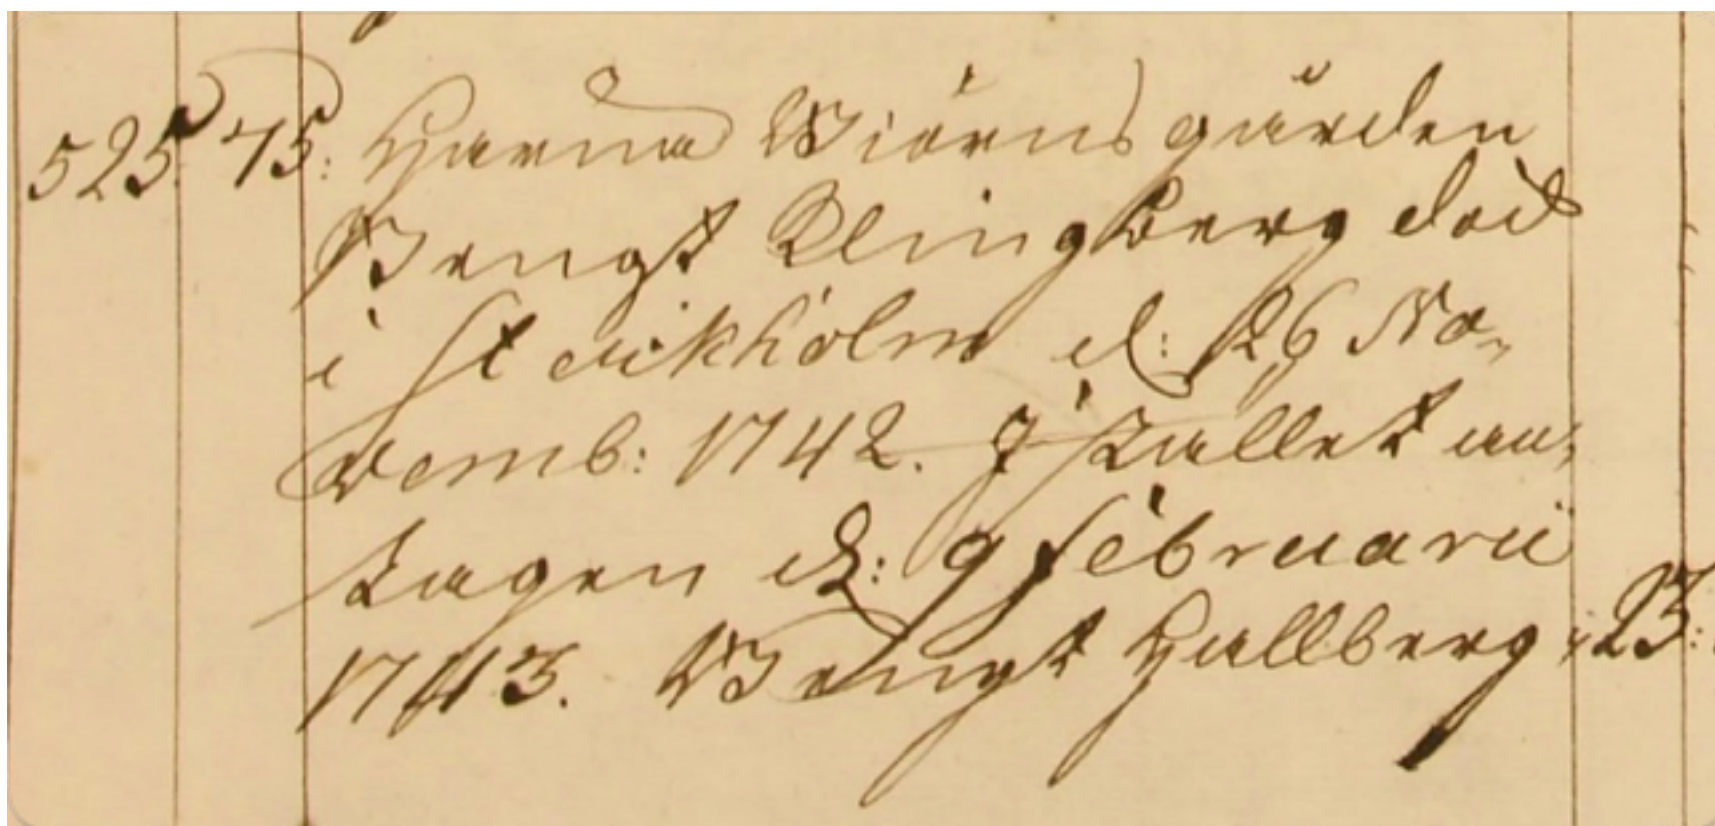 525. 75. Harna Biörnsgården
Bengt Klingberg död
i Stockholm d: 26 No-
vemb: 1742. I stället an-
tagen d: 9 februarii
1743. Bengt Hallberg 23.